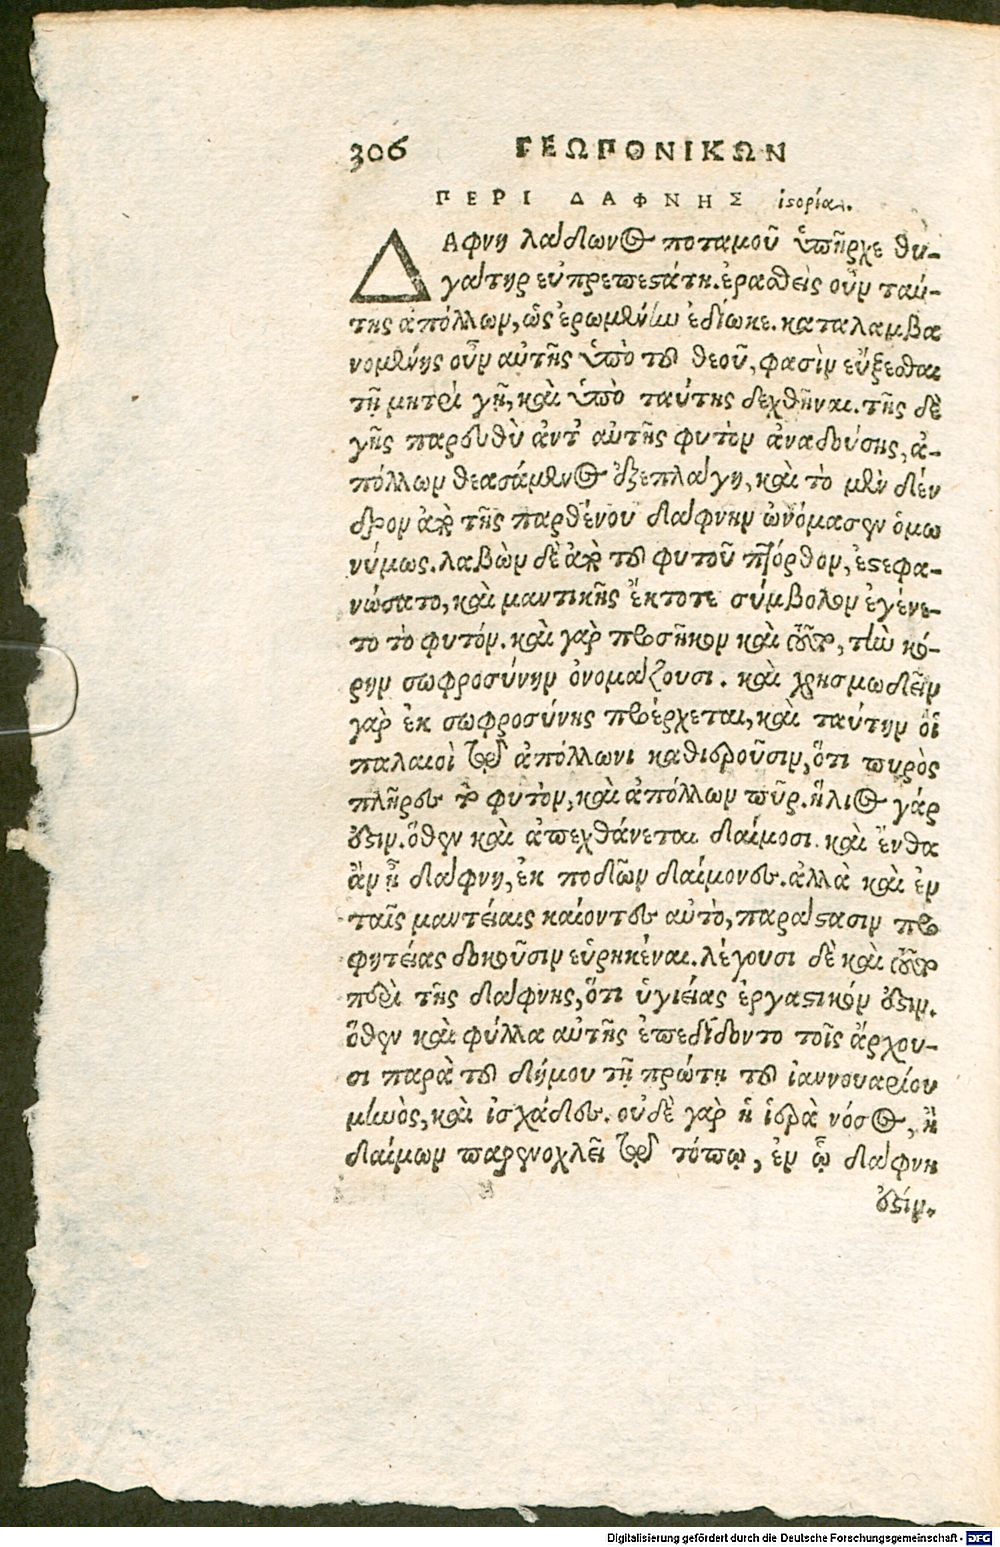 306 ΓΕΩΠΟΝΙΚΩΝ
ΠΕΡΙ ΔΑΦΝΗΣ ἱστορία.
ΔΑφνη λάδωνος ποταμοῦ ὑπῆρχε θυ-
γάτηρ εὐπρεπεστάτη. ἐρασθεὶς οὖν ταύ-
της ἀπόλλων, ὡς ἐρωμένην ἐδίωκε. καταλαμβα
νομένης οὖν αὐτῆς ὑπὸ τοῦ θεοῦ, φασὶν εὔξεσθαι
τῇ μητρὶ γῇ, καὶ ὑπὸ ταύτης δεχθῆναι. τῆς δὲ
γῆς παρευθὺ ἀντ' αὐτῆς φυτὸν ἀναδούσης, ἀ-
πόλλων θεασάμενος ἐξεπλάγη, καὶ τὸ μὲν δέν
δρον ἀπὸ τῆς παρθένου δάφνην ὠνόμασεν ὁμω
νύμως. λαβὼν δὲ ἀπὸ τοῦ φυτοῦ πτόρθον, ἐστεφα-
νώσατο, καὶ μαντικῆς ἔκτοτε σύμβολον ἐγένε-
το τὸ φυτόν. καὶ γὰρ προσῆκον καὶ τοῦτο, τὴν κό-
ρην σωφροσύνην ὀνομάζουσι. καὶ χρησμωδεῖν
γὰρ ἐκ σωφροσύνης προέρχεται, καὶ ταύτην οἱ
παλαιοὶ τῷ ἀπόλλωνι καθιεροῦσιν, ὅτι πυρὸς
πλῆρες τὸ φυτὸν, καὶ ἀπόλλων πῦρ. ἥλιος γάρ
ἐστιν. ὅθεν καὶ ἀπεχθάνεται δαίμοσι. καὶ ἔνθα
ἂν ᾖ δάφνη, ἐκ ποδῶν δαίμονες. ἀλλὰ καὶ ἐν
ταῖς μαντείαις καίοντες αὐτὸ, παράστασιν προ
φητείας δοκοῦσιν εὑρηκέναι. λέγουσι δὲ καὶ τοῦτο
περὶ τῆς δάφνης, ὅτι ὑγιείας ἐργαστικόν ἐστιν.
ὅθεν καὶ φύλλα αὐτῆς ἐπεδίδοντο τοῖς ἄρχου-
σι παρὰ τοῦ δήμου τῇ πρώτῃ τοῦ ἰαννουαρίου
μηνὸς, καὶ ἰσχάδες. οὐδὲ γὰρ ἡ ἱερὰ νόσος, ἢ
δαίμων παρενοχλεῖ τῷ τόπῳ, ἐν ᾧ δάφνη
ἐστίν.
Digitalisierung gefördert durch die Deutsche Forschungsgemeinschaft - DFG